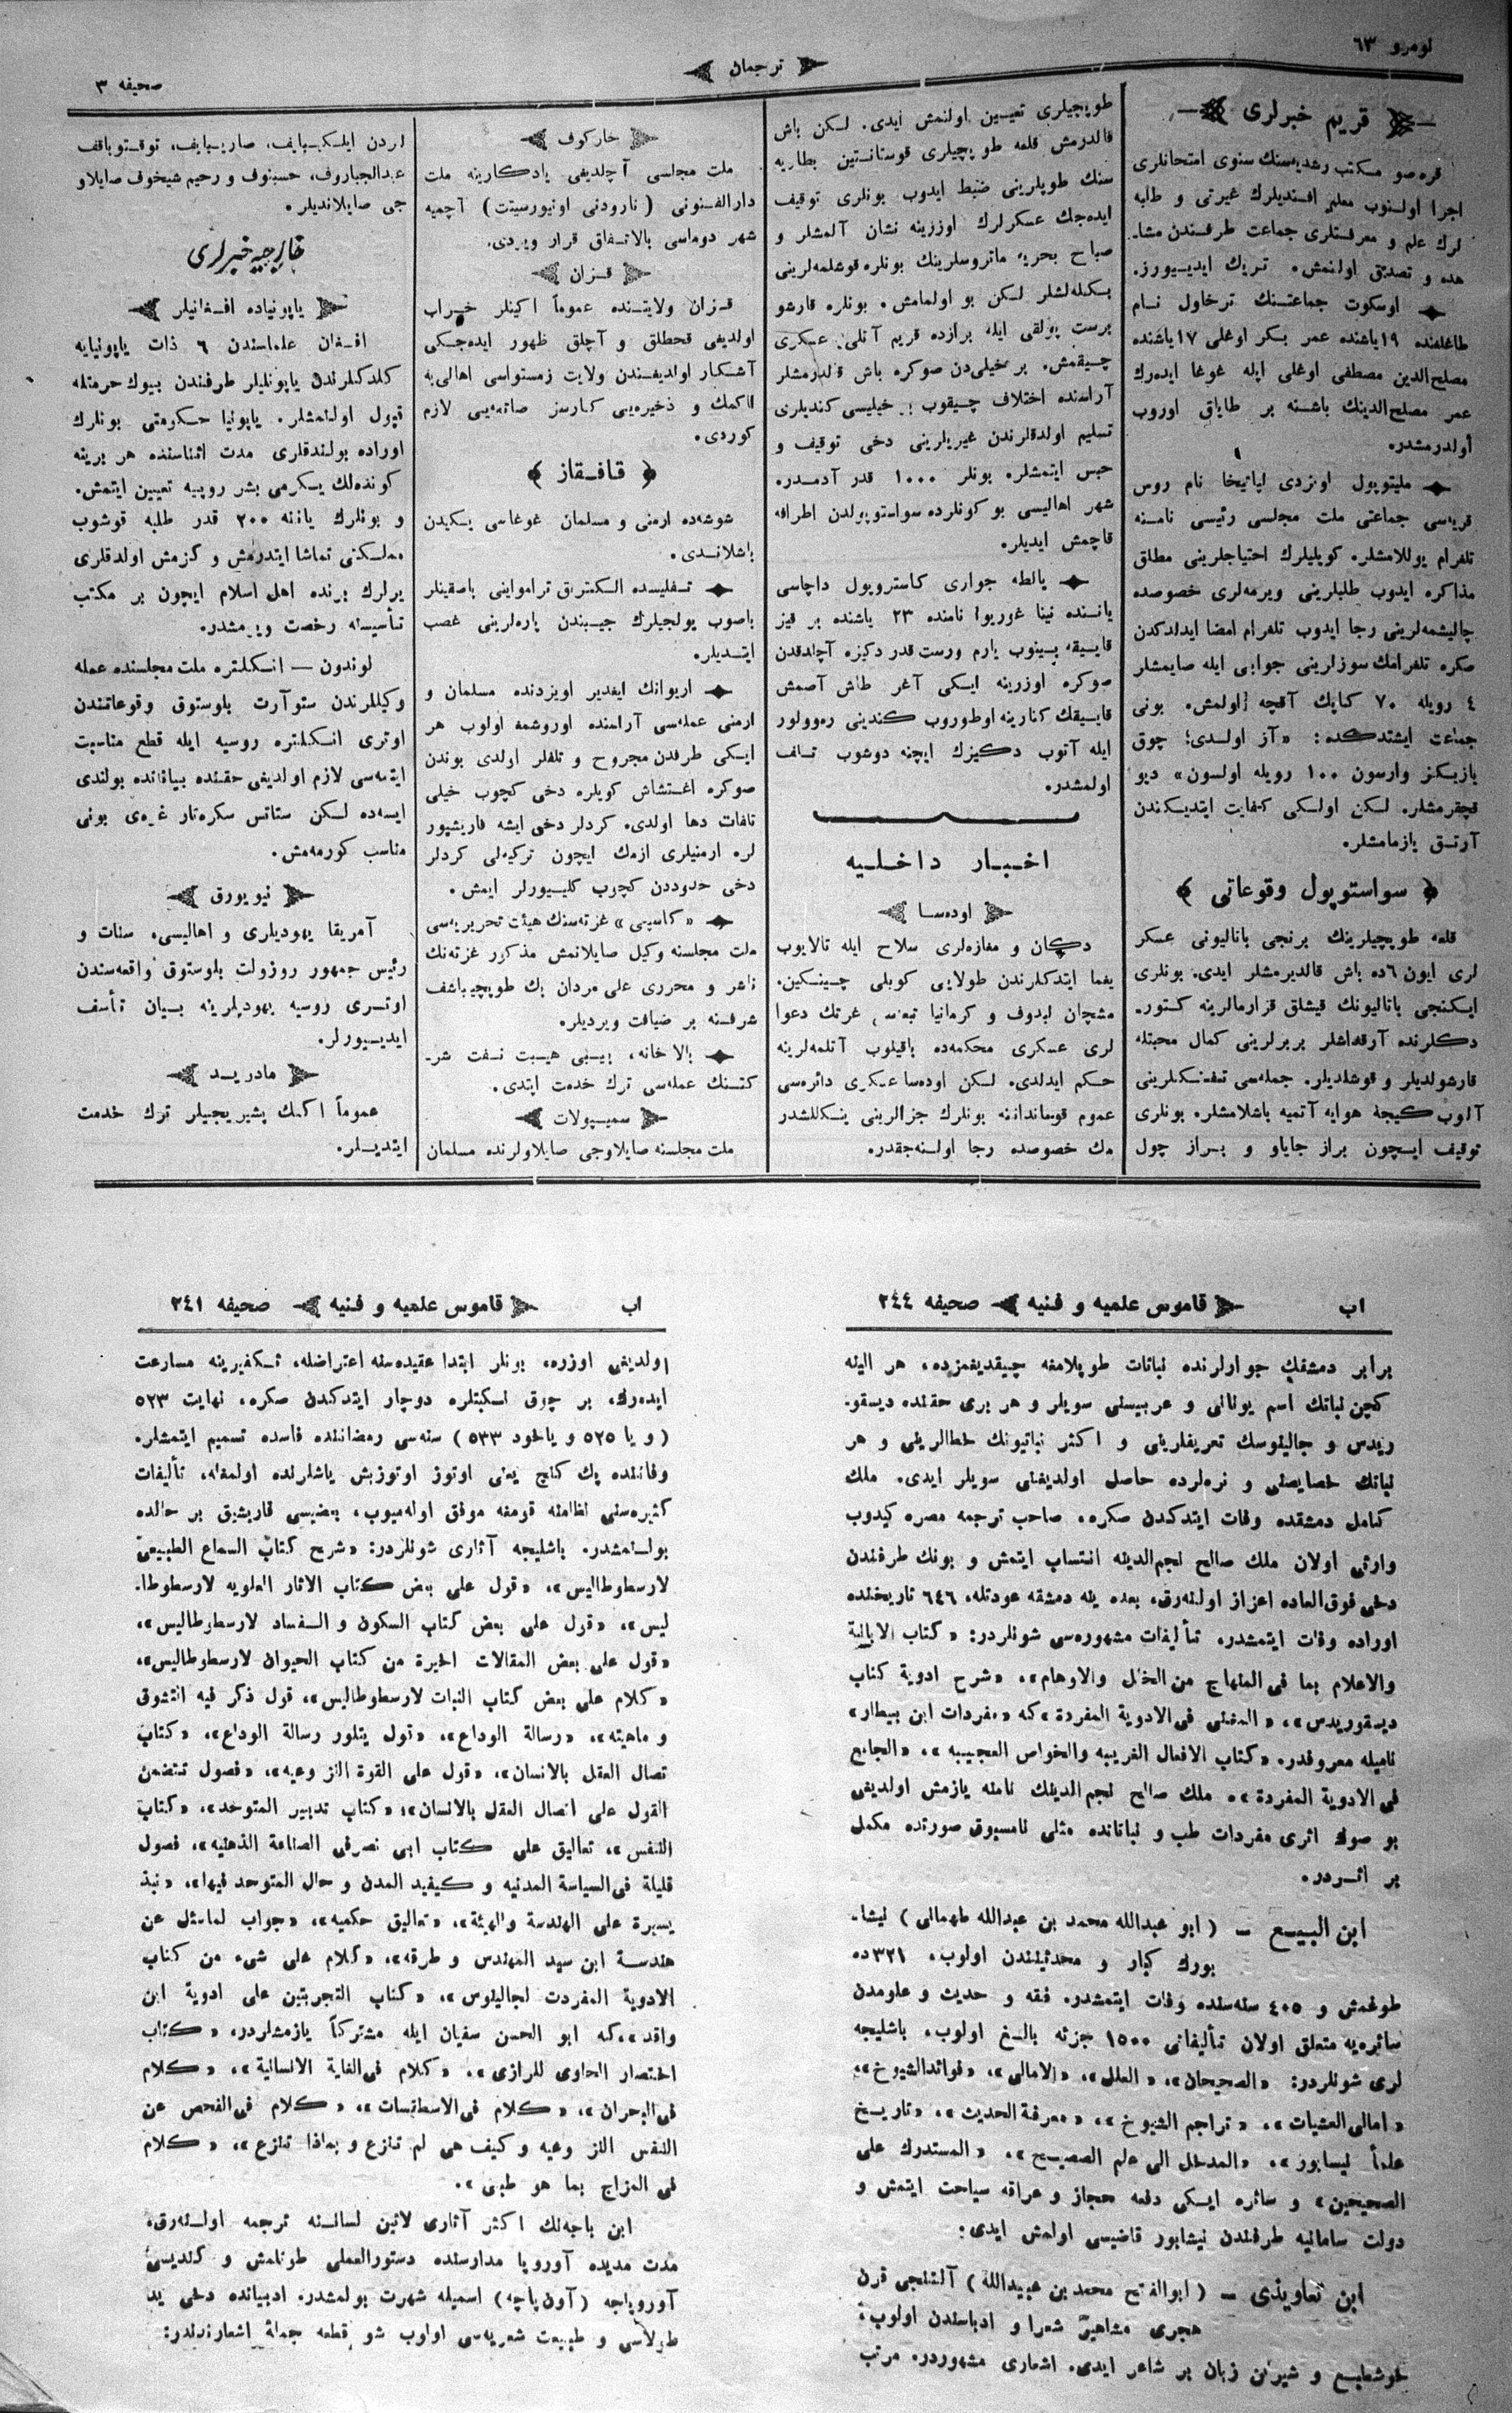 نومرو ٦٣
ترجمان
صحيفه ٣
قريم خبرلرى
قره‌صو مكتب رشديه‌سنك سنوى امتحانلرى
اجرا اولنوب معلم افنديلرك غيرتى و طلبه
لرك علم و معرفتلرى جماعت طرفندن مشا-
هده و تصديق اولنمش. تبريك ايدييورز.
اوسكوت جماعتنك ترخاول نام
طاغلغنده ١٩ ياشنده عمر بكر اوغلى ١٧ ياشنده
مصلح‌الدين مصطفى اوغلى ايله غوغا ايده‌رك
عمر مصلح‌الدينك باشنه بر طاياق اوروب
أولدرمشدر.
مليتوپول اويزدى لپاتيخا نام روس
قريه‌سى جماعتى ملت مجلسى رئيسى نامنه
تلغرام يوللامشلر. كويليلرك احتياجلرينى مطلق
مذاكره ايدوب طلبلرينى ويرمه‌لرى خصوصده
چاليشمه‌لرينى رجا ايدوب تلغرام امضا ايدلدكدن
صكره تلغرامك سوزلرينى جوابى ايله صايمشلر
٤ روبله ٧٠ كپك آقچه اولمش. بونى
جماعت ايشتدكده: «آز اولدى؛ چوق
يازيكز وارسون ١٠٠ روبله اولسون» ديو
قچقرمشلر. لكن اولكى كفايت ايتديكندن
آرتق يازمامشلر.
سواستوپول وقوعاتى
قلعه طوپچيلرينك برنجى باتاليونى عسكر
لرى ايون ٦ده باش قالديرمشلر ايدى. بونلرى
ايكنجى باتاليونك قيشلق قزارمالرينه كتور-
دكلرنده آرقداشلر بربرلرينى كمال محبتله
قارشولديلر و قوشلديلر. جمله‌سى تفنكلرينى
آلوب كيجه هوايه آتميه باشلامشلر. بونلرى
توقيف ايچون براز جاياو و براز چول
طوپچيلرى تعيين اولنمش ايدى. لكن باش
قالدرمش قلعه طوپچيلرى قوستانتين بطاريه
سنك طوپلرينى ضبط ايدوب بونلرى توقيف
ايده‌جك عسكرلرك اوززينه نشان آلمشلر و
صباح بحريه ماتروسلرينك بونلره قوشلمه‌لرينى
بكله‌لشلر لكن بو اولمامش. بونلره قارشو
برست پولقى ايله برازده قريم آتلى عسكرى
چيقمش. بر خيلى‌دن صوكره باش قالدرمشلر
آراسنده اختلاف چيقوب بر خيليسى كنديلرى
تسليم اولدقلرندن غيريلرينى دخى توقيف و
حبس ايتمشلر. بونلر ١٠٠٠ قدر آدمدر.
شهر اهاليسى بو كونلرده سواستوپولدن اطرافه
قاچمش ايديلر.
يالطه جوارى كاستروپول داچاسى
ياننده نينا غوريوا نامنده ٢٣ ياشنده بر قيز
قاييقه بينوب يارم ورست قدر دكيزه آچلدقدن
صوكره اوزرينه ايكى آغر طاش آصمش
قاييقك كنارينه اوطوروب كندينى رەوولور
ايله آتوب دكيزك ايچنه دوشوب تلف
اولمشدر.
اخبار داخليه
اودەسا
دكان و مغازه‌لرى سلاح ايله تالايوب
يغما ايتدكلرندن طولايى كوبلى چينكين،
مشچان ليدوف و كرمانيا تبعه‌سى غرتك دعوا
لرى عسكرى محكمه‌ده باقيلوب آتلمه‌لرينه
حكم ايدلدى. لكن اودەسا عسكرى دائره‌سى
عموم قومانداننه بونلرك جزالرينى ينكللشدر
مك خصوصده رجا اولنه‌جقدر.
خاركوف
ملت مجلسى آچلديغى يادكارينه ملت
دارالفنونى (نارودنى اونيورسيتت) آچميه
شهر دوماسى بالاتفاق قرار ويردى.
قزان
قزان ولايتنده عموماً اكينلر خراب
اولديغى قحطلق و آچلق ظهور ايده‌جكى
آشكار اولديغندن ولايت زمستواسى اهالى‌يه
اكمك و ذخيره‌يى كارسز صاتمه‌يى لازم
كوردى.
قافقاز
شوشه‌ده ارمنى و مسلمان غوغاسى يكيدن
باشلاندى.
تفليسده الكتريق تراموايى باصقينلر
باصوب يولجيلرك جيبندن پاره‌لرينى غصب
ايتديلر.
اريوانك ايغدير اويزدنده مسلمان و
ارمنى عمله‌سى آراسنده اوروشمه اولوب هر
ايكى طرفدن مجروح و تلفلر اولدى بوندن
صوكره اغتشاش كويلره دخى كچوب خيلى
تلفات دها اولدى. كردلر دخى ايشه قاريشيور
لر. ارمنيلرى ازمك ايچون تركيه‌لى كردلر
دخى حدوددن كچوب كلييورلر ايمش.
«كاسپى» غزته‌سنك هيئت تحريريه‌سى
ملت مجلسنه وكيل صايلانمش مذكور غزته‌نك
ناشر و محررى على مردان بك طوپچيباشف
شرفنه بر ضيافت ويرديلر.
بالاخانه، بيبى هيبت نفت شر-
كتنك عمله‌سى ترك خدمت ايتدى.
سميپولات
ملت مجلسنه صايلاوجى صايلاولرنده مسلمان
لردن ايلكبايف، صاربايف، توقتوباقف
عبدالجباروف، حسبنوف و رحيم شيخوف صايلاو
جى صايلانديلر.
خارجيه خبرلرى
ياپونياده افغانيلر
افغان علماسندن ٦ ذات ياپونيايه
كلدكلرندن ياپونليلر طرفندن بيوك حرمتله
قبول اولنمشلر. ياپونيا حكومتى بونلرك
اوراده بولندقلرى مدت اثناسنده هر برينه
كونده‌لك يكرمى بشر روپيه تعيين ايتمش.
و بونلرك ياننه ٢٠٠ قدر طلبه قوشوب
مملكتى تماشا ايتدرمش و كزمش اولدقلرى
يرلرك برنده اهل اسلام ايچون بر مكتب
تأسيسنه رخصت ويرمشدر.
لوندون — انكلتره ملت مجلسنده عمله
وكيللرندن ستوآرت بلوستوق وقوعاتندن
اوترى انكلتره روسيه ايله قطع مناسبت
ايتمه‌سى لازم اولديغى حقنده بياناتده بولندى
ايسه‌ده لكن ستاتس سكره‌تار غره‌ى بونى
مناسب كورمه‌مش.
نيو يورق
آمريقا يهوديلرى و اهاليسى، سنات و
رئيس جمهور روزولت بلوستوق واقعه‌سندن
اوترى روسيه يهوديلرينه بيان تأسف
ايدييورلر.
مادريد
عموماً اكمك پشيريجيلر ترك خدمت
ايتديلر.
اب
قاموس علميه و فنيه
صحيفه ٢٤٤
برابر دمشقك جوارلرنده نباتات طوپلامغه چيقديغمزده، هر الينه
كچن نباتك اسم يونانى و عربيسنى سويلر و هر برى حقنده ديسقو-
ريدس و جالينوسك تعريفلرينى و اكثر نباتيونك خطالرينى و هر
نباتك خصايصنى و نره‌لرده حاصل اولديغنى سويلر ايدى. ملك
كامل دمشقده وفات ايتدكدن صكره، صاحب ترجمه مصره كيدوب
وارثى اولان ملك صالح نجم‌الدينه انتساب ايتمش و بونك طرفندن
دخى فوق‌العاده اعزاز اولنه‌رق، بعده ينه دمشقه عودتله، ٦٤٦ تاريخنده
اوراده وفات ايتمشدر. تأليفات مشهوره‌سى شونلردر: «كتاب الابانة
والاعلام بما فى المنهاج من الخلل والاوهام»، «شرح ادوية كتاب
ديسقوريدس»، «المغنى فى الادوية المفردة» كه «مفردات ابن بيطار»
ناميله معروفدر. «كتاب الافعال الغريبه والخواص العجيبه»، «الجامع
فى الادوية المفردة». ملك صالح نجم‌الدينك نامنه يازمش اولديغى
بو صوك اثرى مفردات طب و نباتاتده مثلى نامسبوق صورتده مكمل
بر اثردر.
ابن البيع – (ابو عبدالله محمد بن عبدالله طهمانى) نيشا-
بورك كبار و محدثيندن اولوب، ٣٢١ده
طوغمش و ٤٠٥ سنه‌سنده وفات ايتمشدر. فقه و حديث و علومدن
سائره‌يه متعلق اولان تأليفاتى ١٥٠٠ جزئه بالغ اولوب، باشليجه
لرى شونلردر: «الصحيحان»، «العلل»، «الامالى»، «فوائدالشيوخ»،
«امالى العشيات»، «تراجم الشيوخ»، «معرفة الحديث»، «تاريخ
علمأ نيسابور»، «المدخل الى علم الصحيح»، «المستدرك على
الصحيحين» و سائره ايكى دفعه حجاز و عراقه سياحت ايتمش و
دولت سامانيه طرفندن نيشابور قاضيسى اولمش ايدى:
ابن تعاويذى – (ابوالفتح محمد بن عبيدالله) آلتنجى قرن
هجرى مشاهير شعرا و ادباسندن اولوب،
خوشطبع و شيرين زبان بر شاعر ايدى. اشعارى مشهوردر. مرتب
اب
قاموس علميه و فنيه
صحيفه ٢٤١
اولديغى اوزره، بونلر ابتدا عقيده‌سنه اعتراضله، تكفيرينه مسارعت
ايده‌رك، بر چوق نكبتلره دوچار ايتدكدن صكره، نهايت ٥٢٣
(و يا ٥٢٥ و ياخود ٥٣٣) سنه‌سى رمضاننده فاسده تسميم ايتمشلر.
وفاتنده پك كنج يعنى اوتوز اوتوزبش ياشلرنده اولمغله، تأليفات
كثيره‌سنى نظامنه قومغه موفق اوله‌ميوب، بعضيسى قاريشيق بر حالده
بولنمشدر. باشليجه آثارى شونلردر: «شرح كتاب السماع الطبيعى
لارسطوطاليس»، «قول على بعض كتاب الاثار العلويه لارسطوطا-
ليس»، «قول على بعض كتاب السكون و الفساد لارسطوطاليس»،
«قول على بعض المقالات اخيرة من كتاب الحيوان لارسطوطاليس»،
«كلام على بعض كتاب النبات لارسطوطاليس»، قول ذكر فيه التشوق
و ماهيته»، «رسالة الوداع»، «قول يتلور رسالة الوداع»، «كتاب
تصال العقل بالانسان»، «قول على القوة النزوعيه»، «فصول تتضمن
القول على اتصال العقل بالانسان»، «كتاب تدبير المتوحد»، «كتاب
النفس»، تعاليق على كتاب ابى نصر فى الصناعة الذهنيه»، فصول
قليلة فى السياسة المدنيه و كيفيد المدن و حال المتوحد فيها»، «نبذ
يسيرة على الهندسة والهيئة»، «تعاليق حكميه»، «جواب لماسئل عن
هندسة ابن سيد المهندس و طرقه»، «كلام على شىء من كتاب
الادوية المفردت لجالينوس»، «كتاب التجربتين على ادوية ابن
وافد» كه ابو الحسن سفيان ايله مشتركاً يازمشلردر، «كتاب
اختصار الحاوى للرازى»، «كلام فى الغاية الانسانية»، «كلام
فى البحران»، «كلام فى الاسطقسات»، «كلام فى الفحص عن
النفس النزوعيه و كيف هى لم تنزع و بماذا تنزع»، «كلام
فى المزاج بما هو طبى».
ابن باجه‌نك اكثر آثارى لاتين لساننه ترجمه اولنه‌رق،
مدت مديده آوروپا مدارسنده دستورالعملى طوتلمش و كنديسى
آوروپاجه (آون‌پاچه) اسميله شهرت بولمشدر. ادبياتده دخى يد
طولاسى و طبيعت شعريه‌سى اولوب شو قطعه جملۀ اشعارندندر: